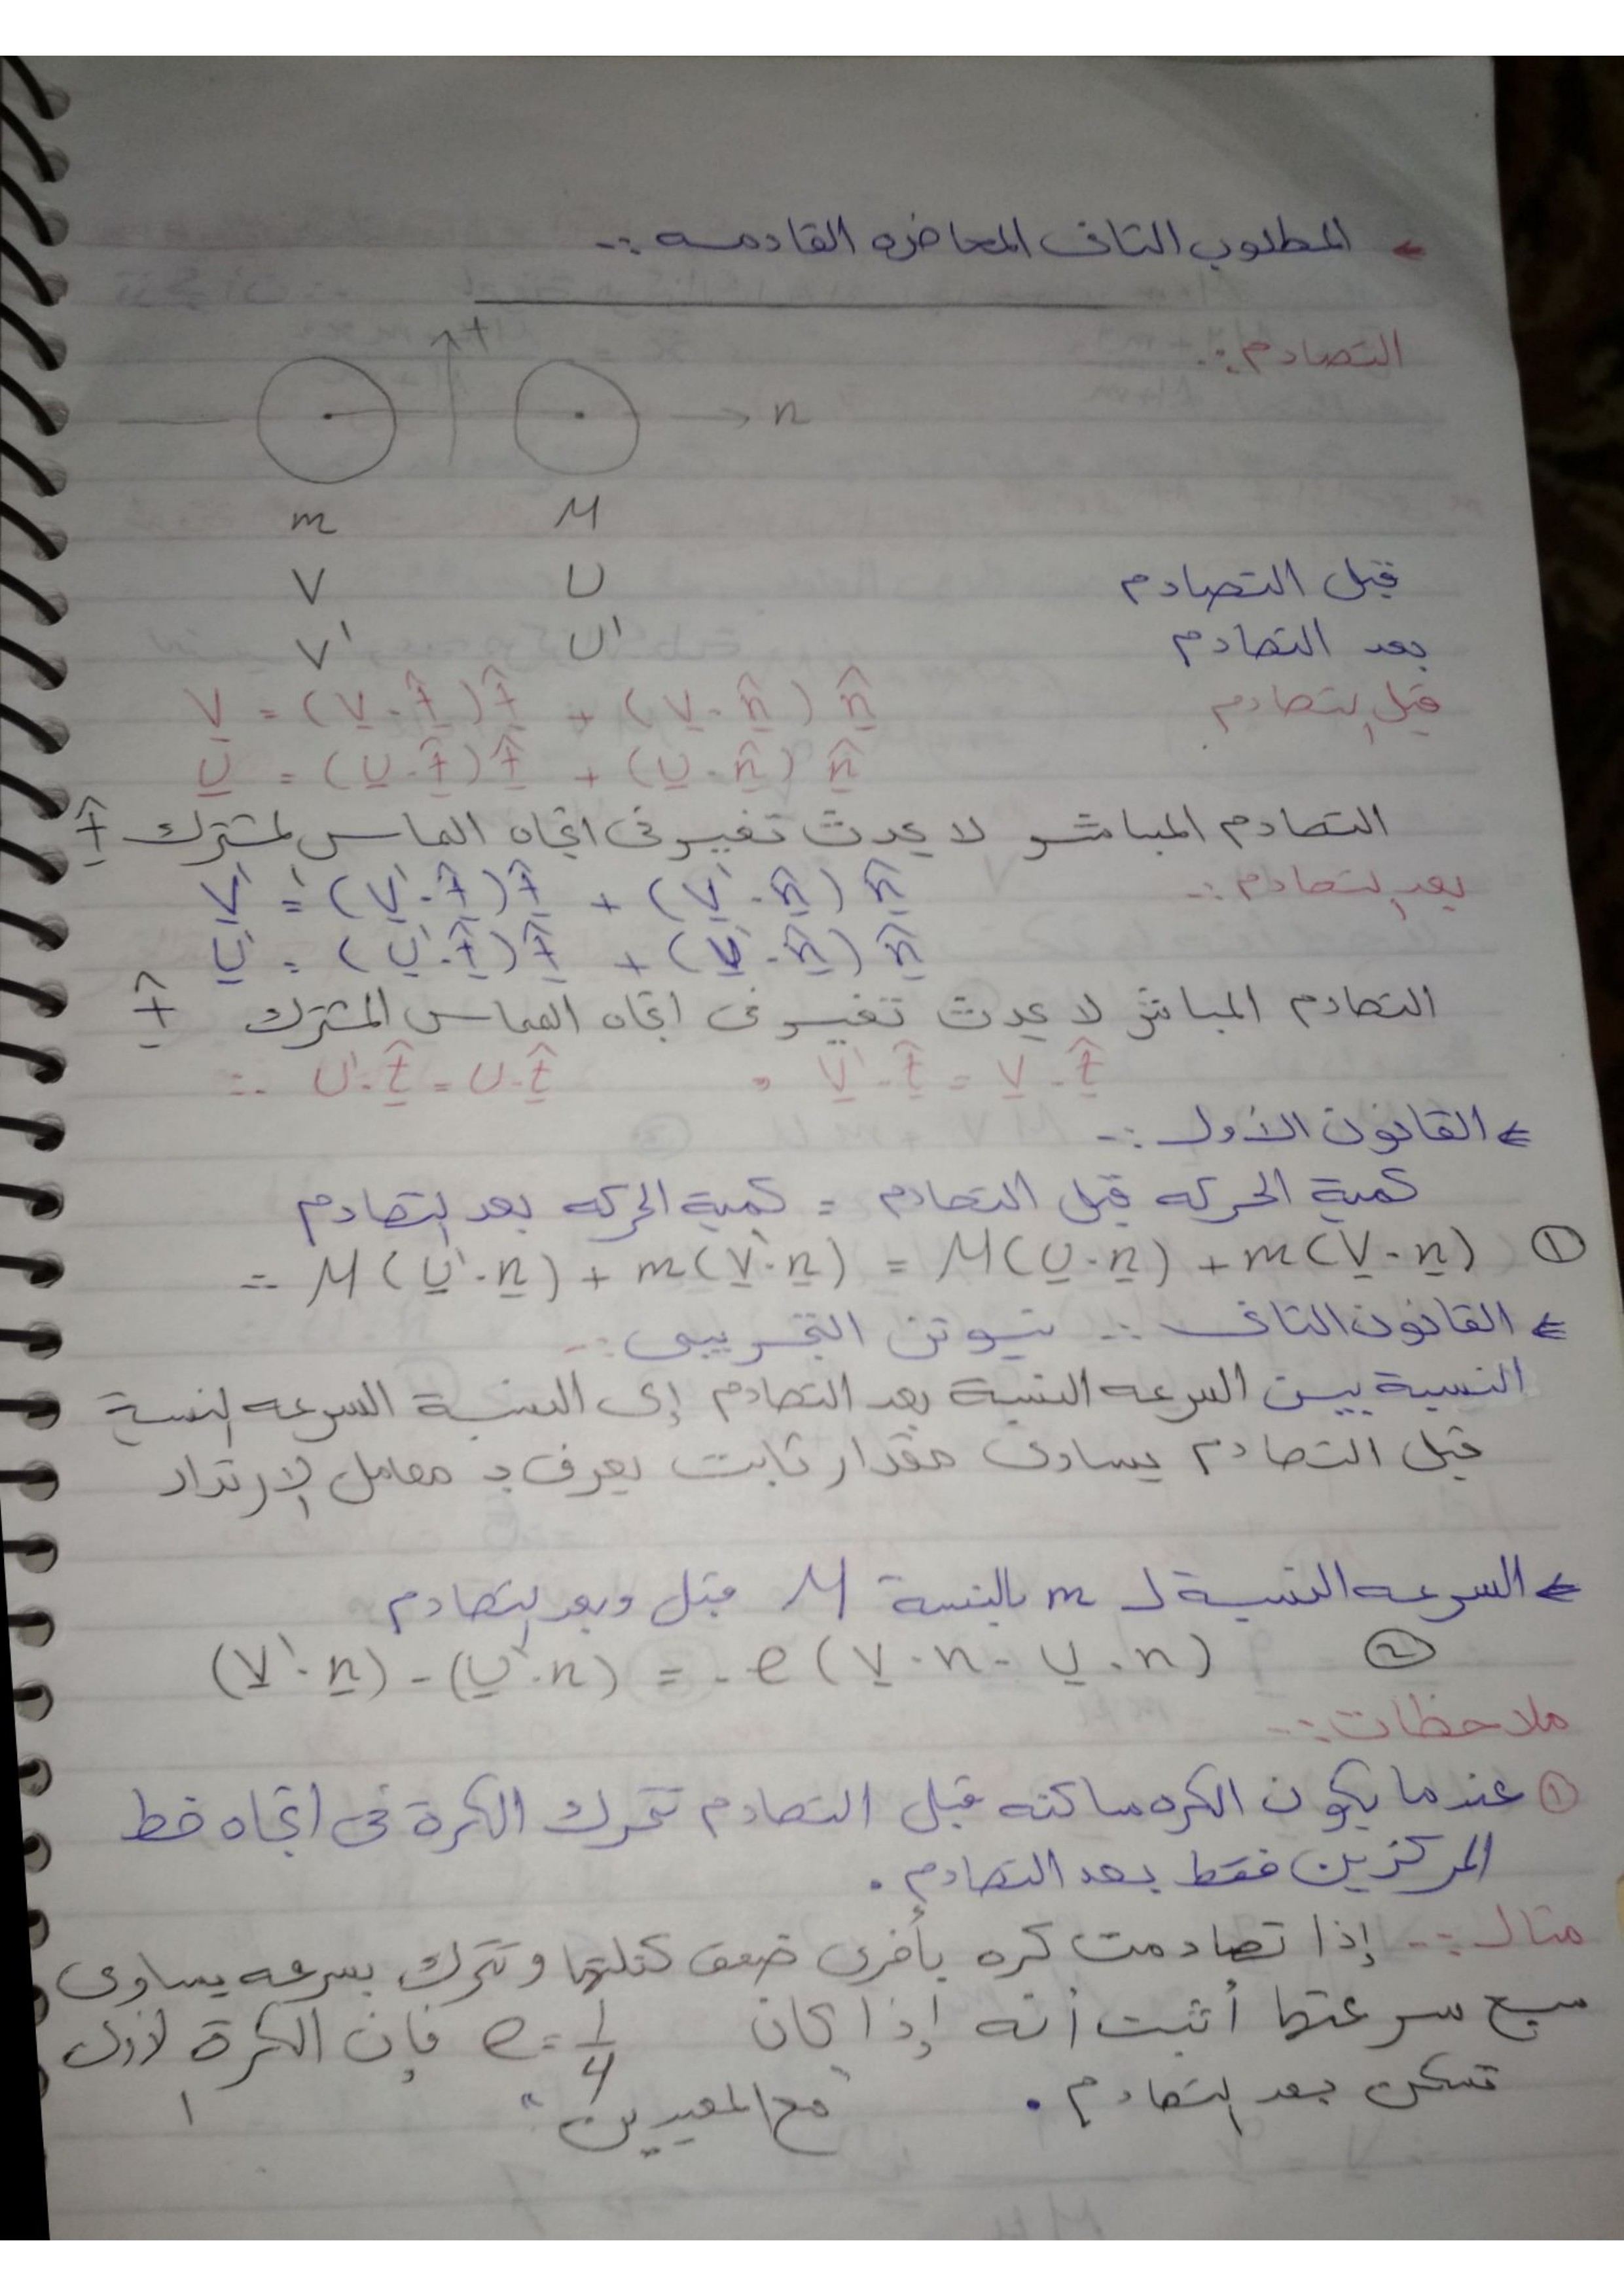 ← المطلوب الثانى المحاضره القادمه :-
التصادم :-
t
n
m M
قبل التصادم V U
بعد التصادم V' U'
قبل التصادم V = (V . t̂) t̂ + (V . n̂) n̂
U = (U . t̂) t̂ + (U . n̂) n̂
التصادم المباشر لا يحدث تغيير فى اتجاه المماس المشترك t̂
بعد التصادم :- V' = (V' . t̂) t̂ + (V' . n̂) n̂
U' = (U' . t̂) t̂ + (U' . n̂) n̂
التصادم المباشر لا يحدث تغيير فى اتجاه المماس المشترك t̂
∴ U' . t̂ = U . t̂ , V' . t̂ = V . t̂
⇐ القانون الأول :-
كمية الحركه قبل التصادم = كمية الحركه بعد التصادم
∴ M (U' . n) + m (V' . n) = M (U . n) + m (V . n) ①
⇐ القانون الثانى :- نيوتن التجريبى :-
النسبة بين السرعه النسبة بعد التصادم إلى النسبة السرعه النسبة
قبل التصادم يساوى مقدار ثابت يعرف بـ معامل الارتداد
⇐ السرعه النسبية لـ m بالنسبة M قبل وبعد التصادم
(V' . n) - (U' . n) = - e (V . n - U . n) ②
ملاحظات :-
① عندما يكون الكره ساكنه قبل التصادم تتحرك الكرة فى اتجاه خط
المركزين فقط بعد التصادم .
مثال :- إذا تصادمت كره بأخرى ضعف كتلتها وتتحرك بسرعه يساوى
سبع سرعتها أثبت أنه إذا كان e = 3/4 فإن الكرة الأولى
تسكن بعد التصادم . "مع المعيدين"
1